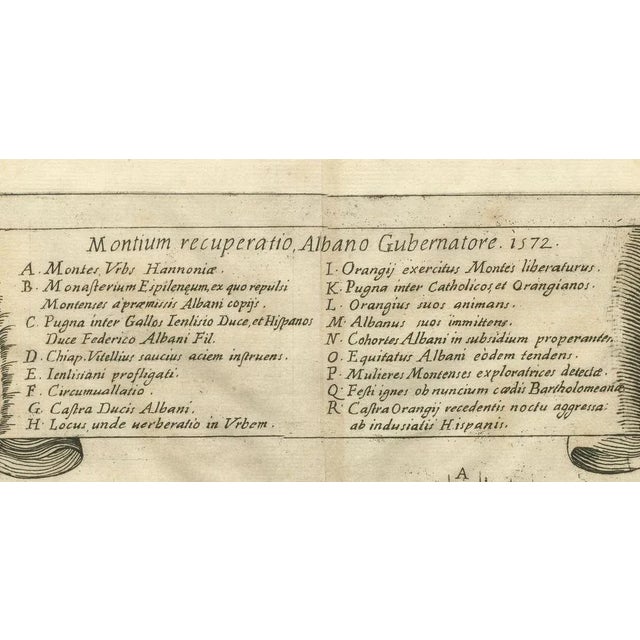 Montium recuperatio, Albano Gubernatore. 1572.
A. Montes, Vrbs Hannoniæ.
B. Monasterium Espilenęum, ex quo repulsi
Montenses a præmissis Albani copijs.
C. Pugna inter Gallos Ienlisio Duce, et Hispanos
Duce Federico Albani Fil.
D. Chiap. Vitellius saucius aciem instruens.
E. Ienlisiani profligati.
F. Circumuallatio.
G. Castra Ducis Albani.
H. Locus unde uerberatio in Vrbem.
I. Orangij exercitus Montes liberaturus.
K. Pugna inter Catholicos, et Orangianos.
L. Orangius suos animans.
M. Albanus suos immittens.
N. Cohortes Albani in subsidium properantes.
O. Equitatus Albani eòdem tendens.
P. Mulieres Montenses exploratrices detectæ.
Q. Festi ignes ob nuncium cædis Bartholomeanæ
R. Castra Orangij recedentis noctu aggressa
ab indusialis Hispanis.
A